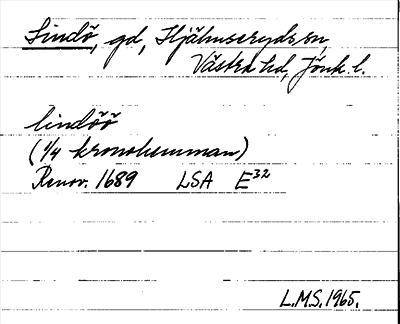 Lindö, gd, Hjälmseryds sn,
Västra hd, Jönk. l.
lindöö
(1/4 kronohemman)
Renov. 1689 LSA E³²
L.M.S. 1965.